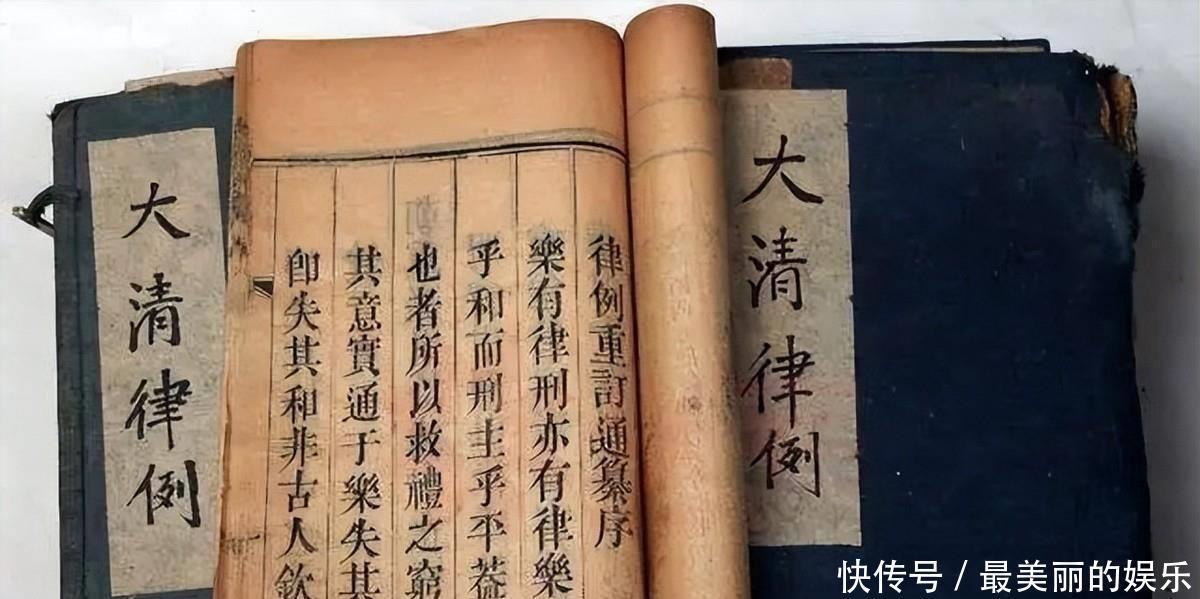 大清律例
律例重訂通纂序
樂有律刑亦有律樂
乎和而刑主乎平葢
也者所以救禮之窮
其意實通于樂失其
卽失其和非古人欽
大清律例
快传号 / 最美丽的娱乐